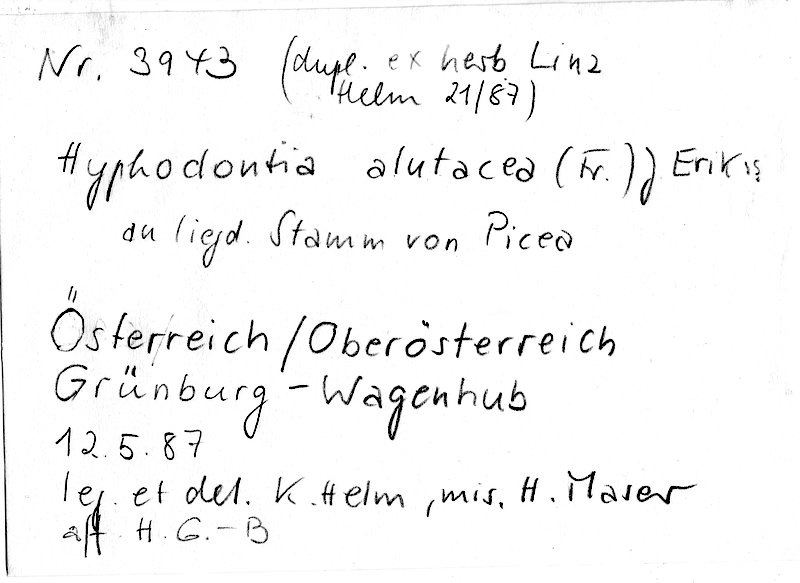 Nr. 3943 (dupl. ex herb Linz
Helm 21/87)
Hyphodontia alutacea (Fr.) J Erikss
an liegd. Stamm von Picea
Österreich/Oberösterreich
Grünburg - Wagenhub
12.5.87
leg. et det. K. Helm, mis. H. Maser
aff H. G. - B